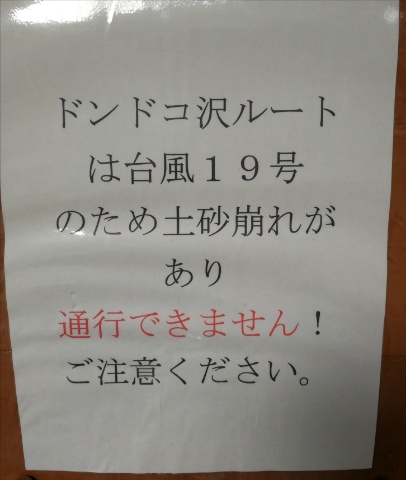 ドンドコ沢ルート
は台風１９号
のため土砂崩れが
あり
通行できません！
ご注意ください。